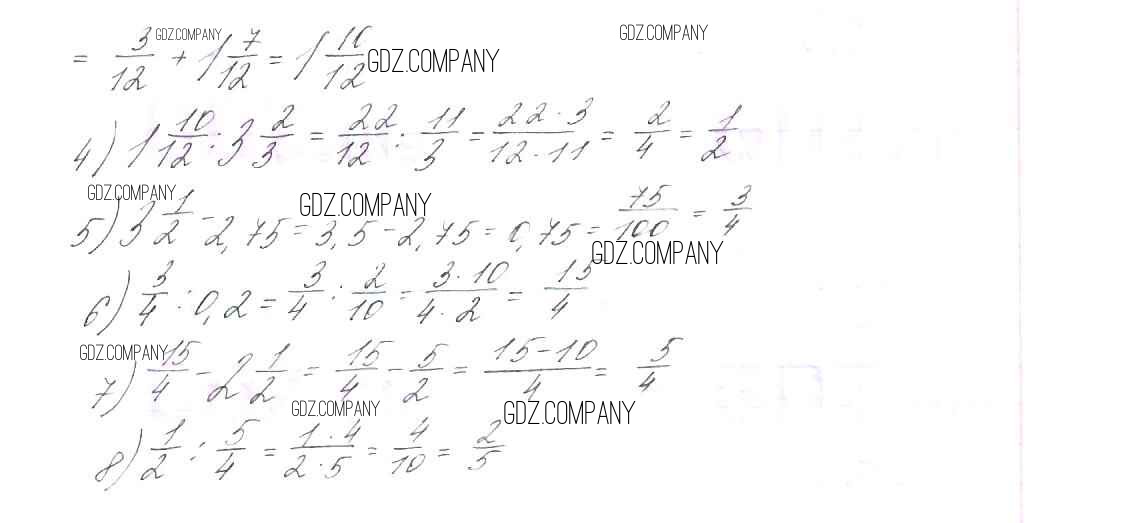 GDZ.COMPANY GDZ.COMPANY
= 3/12 + 1 7/12 = 1 10/12 GDZ.COMPANY
4) 1 10/12 : 3 2/3 = 22/12 : 11/3 = 22·3/12·11 = 2/4 = 1/2
GDZ.COMPANY GDZ.COMPANY
5) 3 1/2 - 2,75 = 3,5 - 2,75 = 0,75 = 75/100 = 3/4
GDZ.COMPANY
6) 3/4 : 0,2 = 3/4 : 2/10 = 3·10/4·2 = 15/4
GDZ.COMPANY
7) 15/4 - 2 1/2 = 15/4 - 5/2 = 15-10/4 = 5/4
GDZ.COMPANY GDZ.COMPANY
8) 1/2 : 5/4 = 1·4/2·5 = 4/10 = 2/5